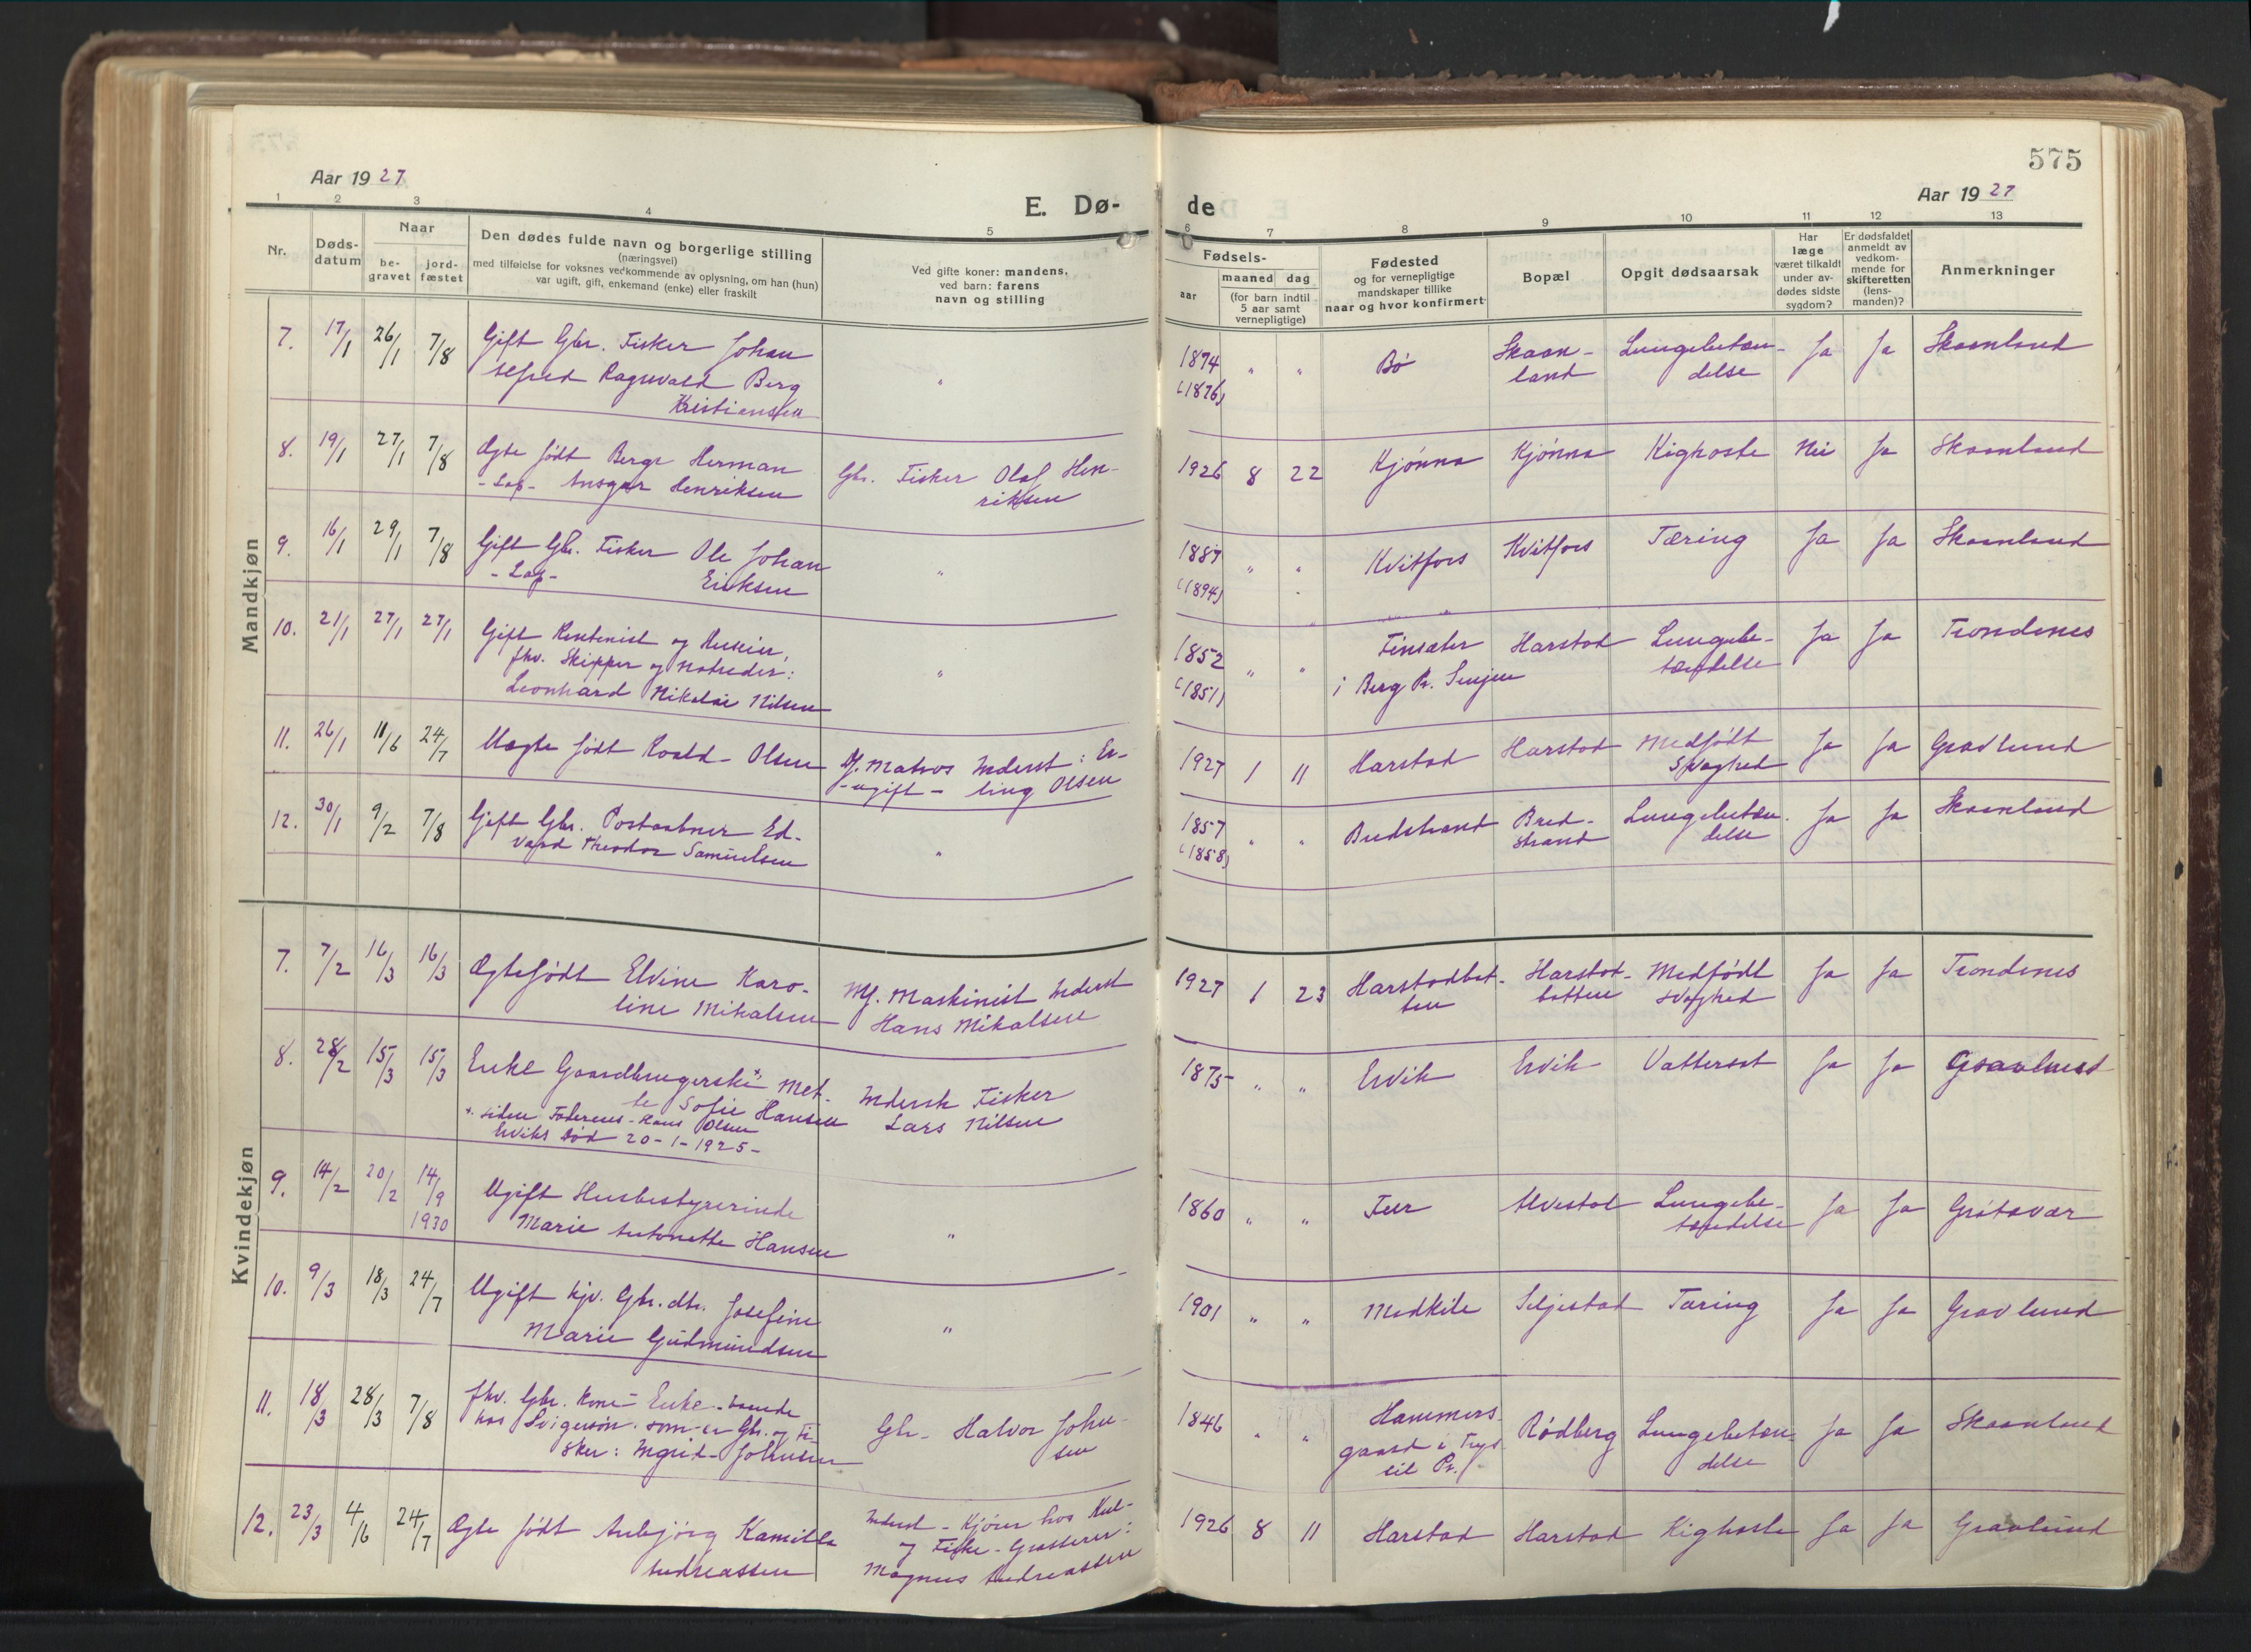 575
Aar 1927
E. Dø-
de
Aar 1927
1 2 3 4 5 6 7 8 9 10 11 12 13
Nr.
Døds-
datum
Naar
be-
gravet
jord-
fæstet
Den dødes fulde navn og borgerlige stilling
(næringsvei)
med tilføielse for voksnes vedkommende av oplysning, om han (hun)
var ugift, gift, enkemand (enke) eller fraskilt
Ved gifte koner: mandens,
ved barn: farens
navn og stilling
Fødsels-
aar
maaned dag
(for barn indtil
5 aar samt
vernepligtige)
Fødested
og for vernepligtige
mandskaper tillike
naar og hvor konfirmert
Bopæl
Opgit dødsaarsak
Har
læge
været tilkaldt
under av-
dødes sidste
sygdom?
Er dødsfaldet
anmeldt av
vedkom-
mende for
skifteretten
(lens-
manden)?
Anmerkninger
Mandkjøn
7. 17/1 26/1 7/8 Gift Gbr. Fisker Johan
Alfred Ragnvald Berg
Kristiansen
" 1874 (1876) " " Bø Skaan-
land Lungebetæn-
delse Ja Ja Skaanland
8. 19/1 27/1 7/8 Ægte født Berge Herman
- Lap - Ansgar Henriksen
Gbr. Fisker Olaf Hen-
riksen
1926 8 22 Kjønna Kjønna Kighoste Nei Ja Skaanland
9. 16/1 29/1 7/8 Gift Gbr. Fisker Ole Johan
- Lap - Eriksen
" 1887 (1894) " " Kvitfors Kvitfors Tæring Ja Ja Skaanland
10. 21/1 27/1 27/1 Gift Rentenist og
fhv. Skipper og Notreder:
Leonhard Nikolai Nilsen
" 1852 (1851) " " Finsæter
i Berg Pr. Senjen Harstad Lungebe-
tændelse Ja Ja Trondenes
11. 26/1 11/6 24/7 Uægte født Roald - Olsen
Uf. Matros Inderst: Er-
- ugift - ling Olsen
1927 1 11 Harstad Harstad Medfødt
Svaghed Ja Ja Gravlund
12. 30/1 9/2 7/8 Gift Gbr. Postaabner Ed-
vard Theodor Samuelsen
" 1857 (1858) " " Bredstrand Bred-
strand Lungebetæn-
delse Ja Ja Skaanland
Kvindekjøn
7. 7/2 16/3 16/3 Ægtefødt Elvine Karo-
line Mikalsen
Maskinist Inderst
Hans Mikalsen
1927 1 23 Harstadbot-
ten Harstad-
botten Medfødt
svaghed Ja Ja Trondenes
8. 28/2 15/3 15/3 Enke Gaardbrugerske* Met-
te Sofie Hansen
*. siden Faderens - Hans Olsen
Erviks Død 20-1-1925-
Inderst Fisker
Lars Nilsen
1875 " " Ervik Ervik Vattersot Ja Ja Gravlund
9. 14/2 20/2 14/9 1930 Ugift Husbestyrerinde
Marie Antonette Hansen
" 1860 " " Alvestad Lungebe-
tændelse Ja Ja Grøtavær
10. 9/3 18/3 24/7 Ugift hjv. Gbr. dtr. Josefine
Marie Gudmundsen
" 1901 " " Medkile Seljestad Tæring Ja Ja Gravlund
11. 18/3 28/3 7/8 fhv. Gbr. Kone - Enke - boende
hos Svigersøn. som - er Gbr. og Fi-
sker: Ingrid - Johnsen
Gbr. Halvor John-
sen
1846 " " Hammers-
gaard i Trys-
sil Pr. Rødberg Lungebetæn-
delse Ja Ja Skaanland
12. 23/3 4/6 24/7 Ægte født Aubjørg Kamilla
Andreassen
Inderst - Kjører hos Kul-
og Fiske - Grosserer:
Magnus Andreassen
1926 8 11 Harstad Harstad Kighoste Ja Ja Gravlund